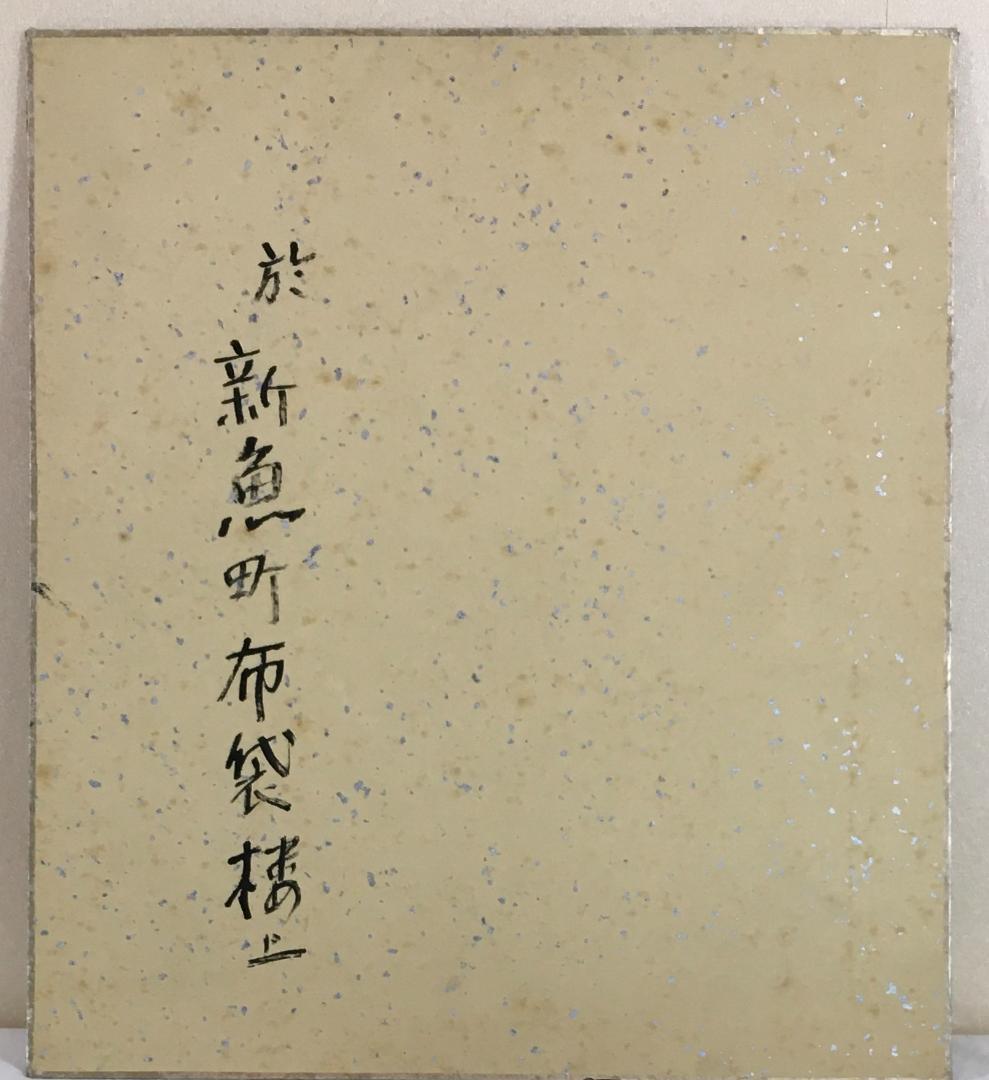 於新魚町布袋楼上